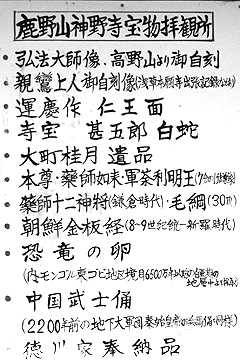 鹿野山神野寺宝物拝観所
弘法大師像、高野山より御自刻
親鸞上人御自刻像
運慶作 仁王面
寺宝 甚五郎 白蛇
大町桂月 遺品
本尊・薬師如来・軍荼利明王
薬師十二神将(鎌倉時代)・毛綱(30m)
朝鮮金板経(8〜9世紀統一新羅時代)
恐竜の卵
(内モンゴル東ゴビ地区 約6500万年以前の
地層中より)
中国武士俑
(2200年前の地下大軍団秦始皇帝の兵馬俑の同様)
徳川家奉納品